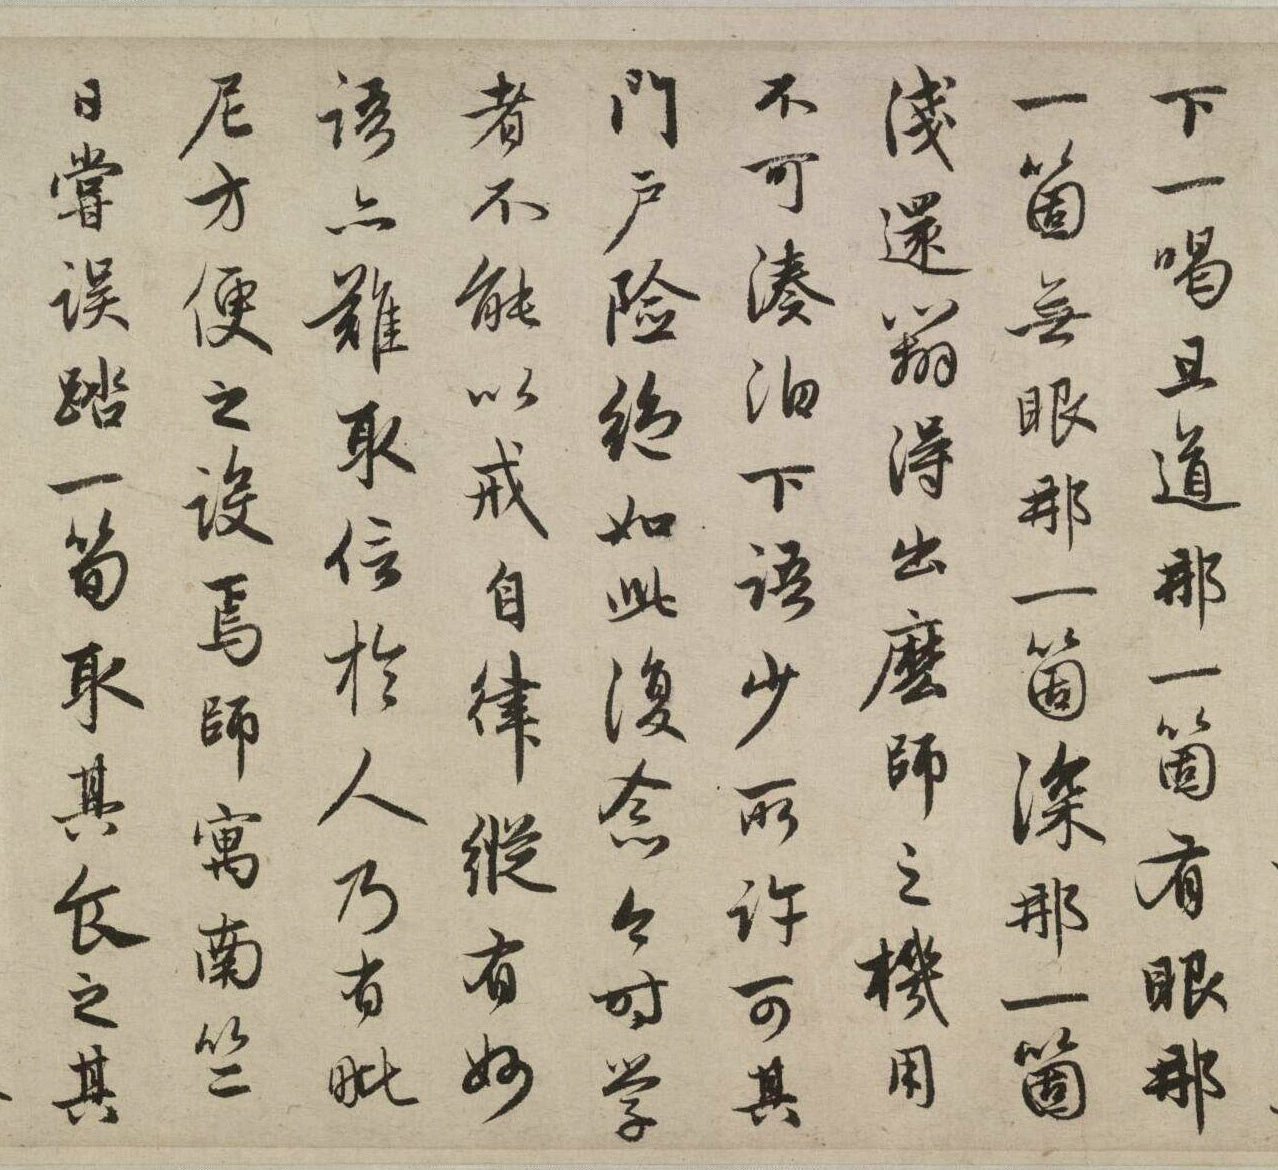 下一喝且道那一箇有眼那
一箇無眼那一箇深那一箇
淺還緇得出麼師之機用
不可湊泊下語少所許可其
門户险絶如此復念今时学
者不能以戒自律縱有妙
語亦難取信於人乃有毗
尼方便之設焉師寓南竺
日嘗误踏一筍取其食之其